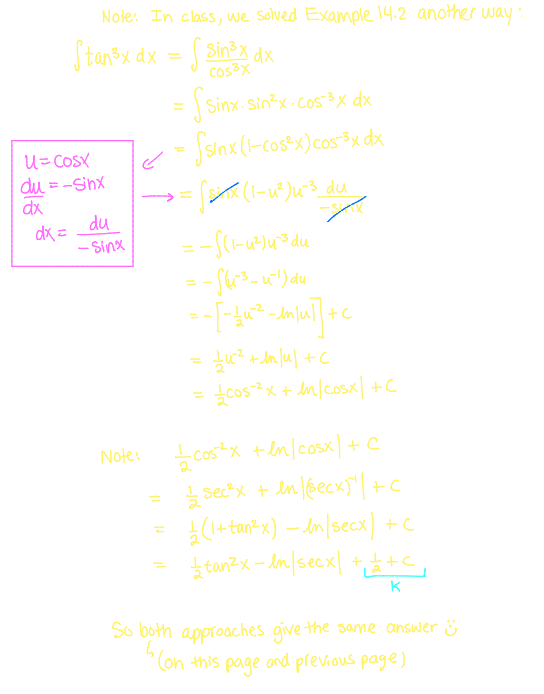 Note: In class, we solved Example 14.2 another way:
∫tan³x dx = ∫ sin³x/cos³x dx
= ∫ sinx · sin²x · cos⁻³x dx
= ∫ sinx (1-cos²x) cos⁻³x dx
u = cosx
du/dx = -sinx
dx = du/-sinx
= ∫ sinx (1-u²) u⁻³ du/-sinx
= -∫(1-u²)u⁻³ du
= -∫(u⁻³ - u⁻¹) du
= -[-1/2 u⁻² - ln|u|] + C
= 1/2 u⁻² + ln|u| + C
= 1/2 cos⁻²x + ln|cosx| + C
Note: 1/2 cos⁻²x + ln|cosx| + C
= 1/2 sec²x + ln|(secx)⁻¹| + C
= 1/2 (1+tan²x) - ln|secx| + C
= 1/2 tan²x - ln|secx| + 1/2 + C
K
So both approaches give the same answer ☺
↳ (on this page and previous page)